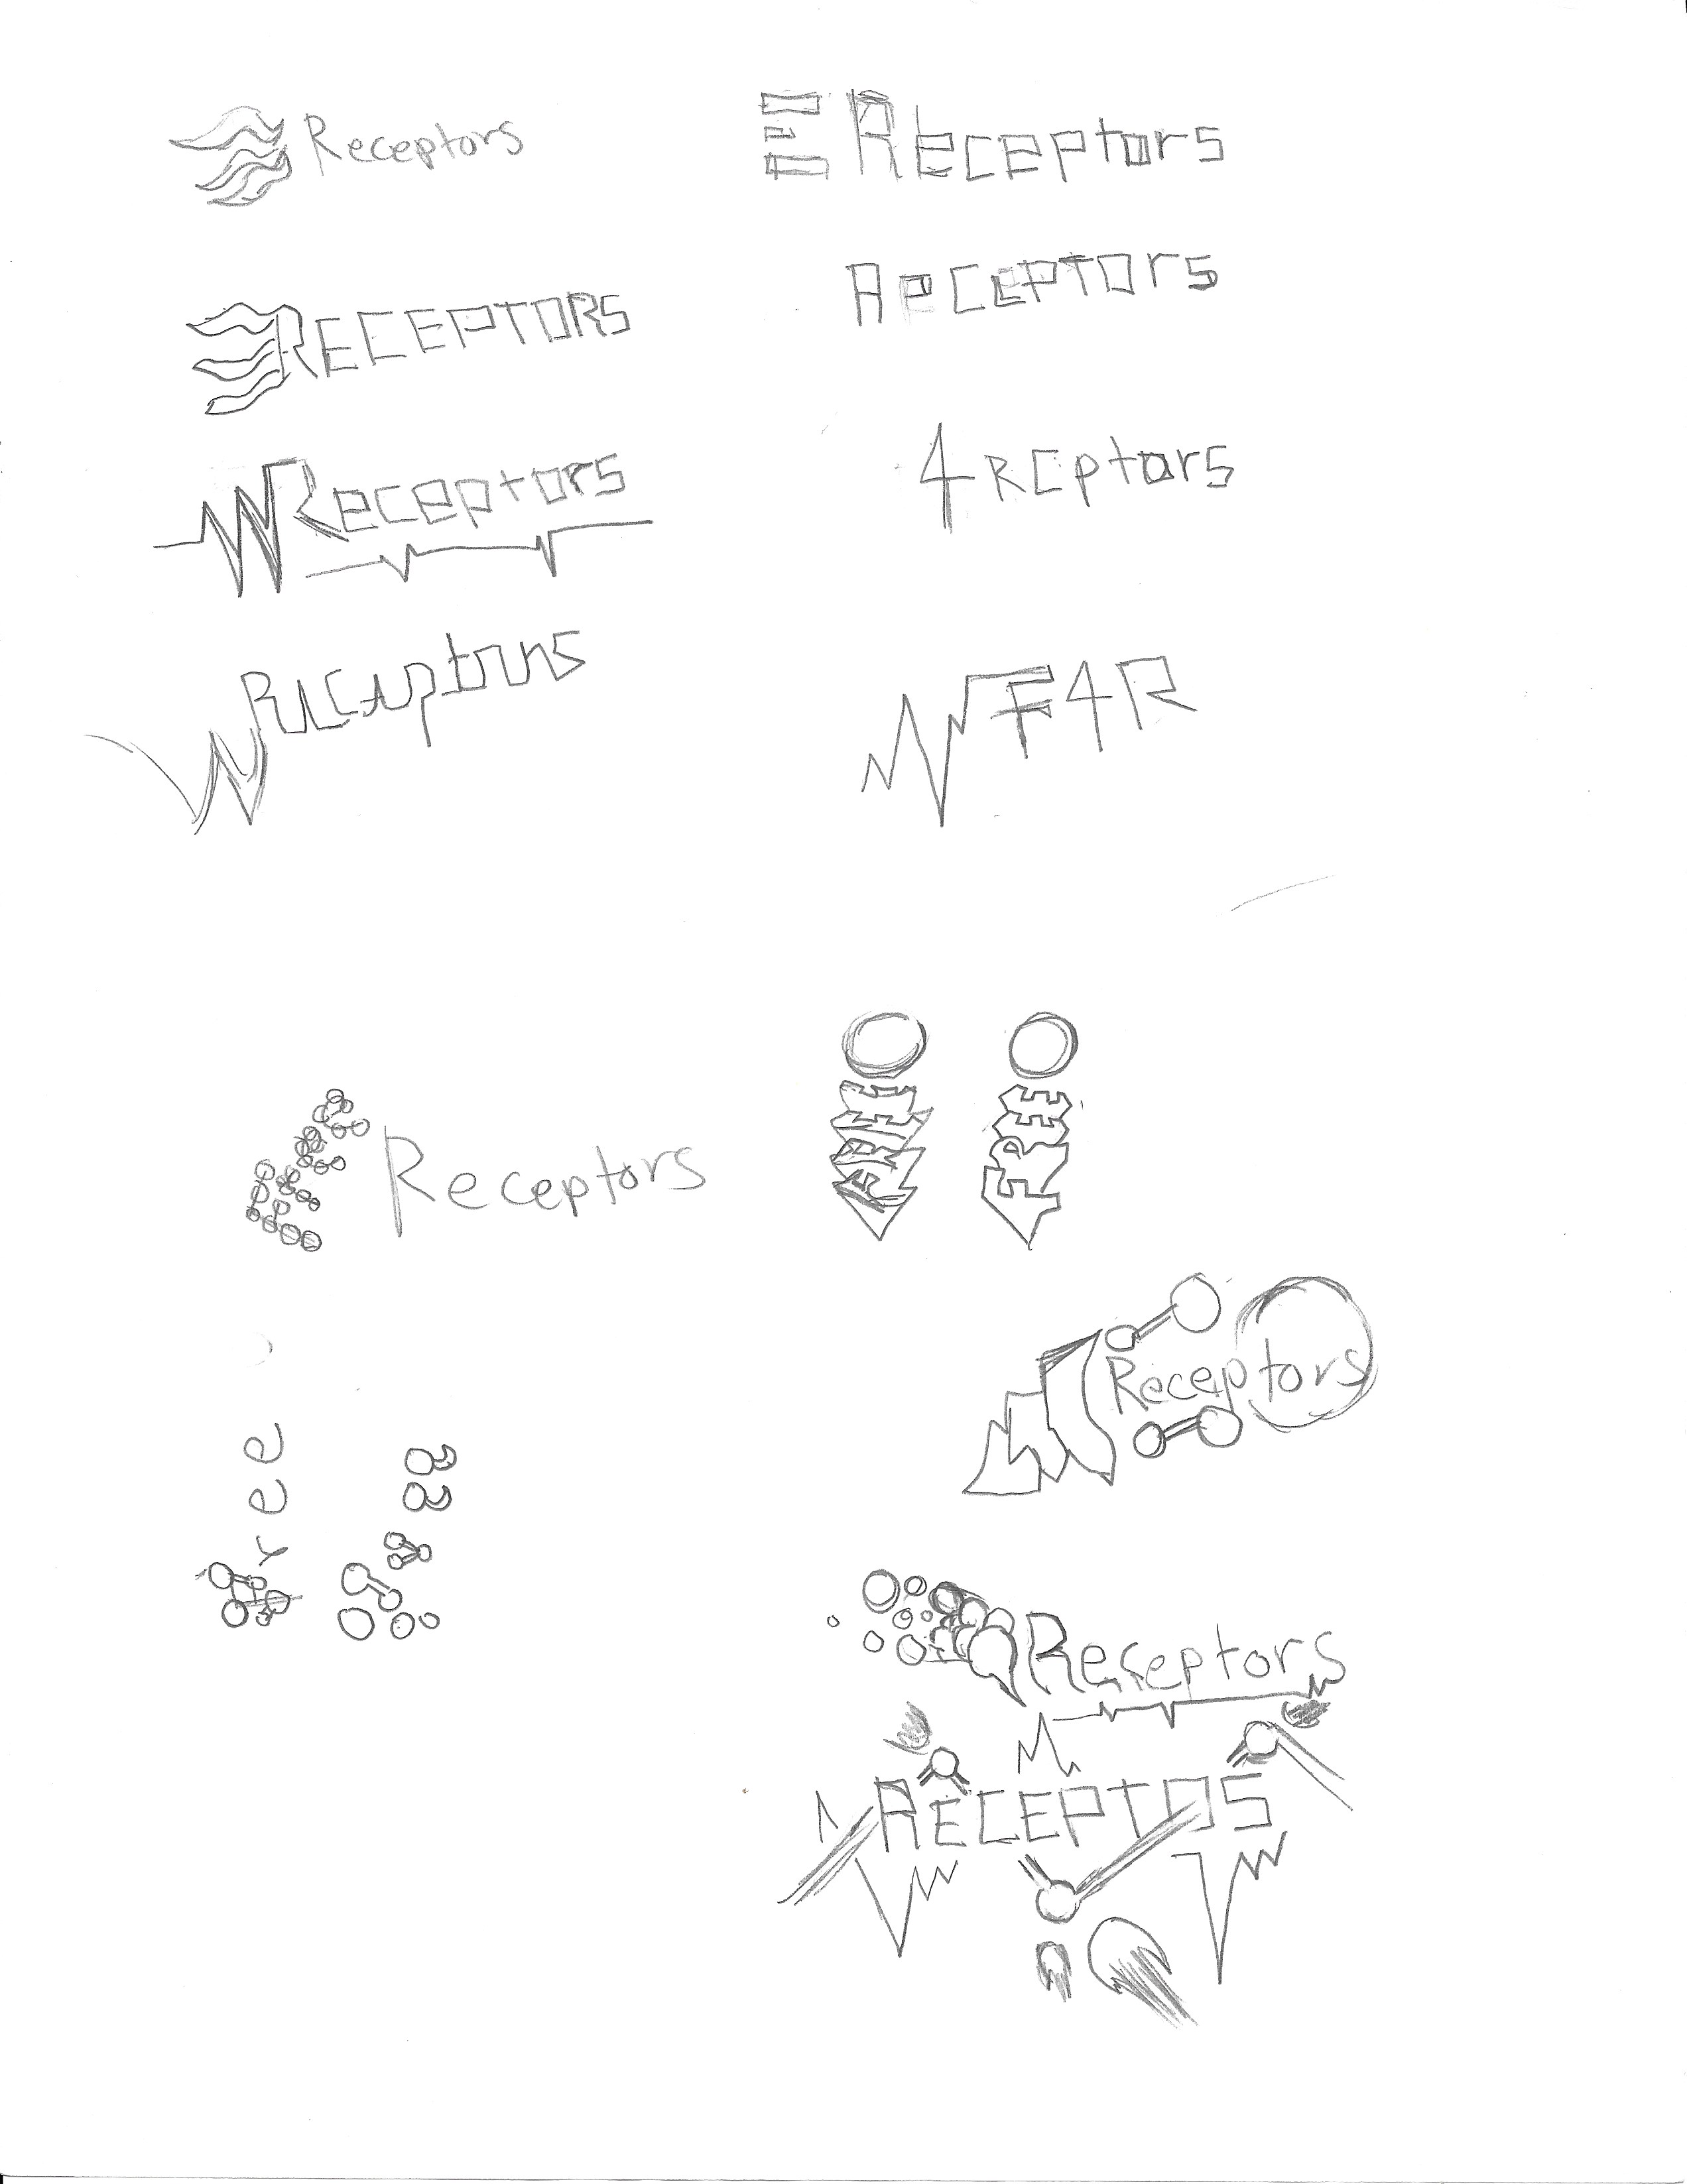 Receptors
Receptors
RECEPTORS
Receptors
Receptors
4 RCptors
Receptors
F4R
Receptors
Receptors
ree
Receptors
RECEPTOS